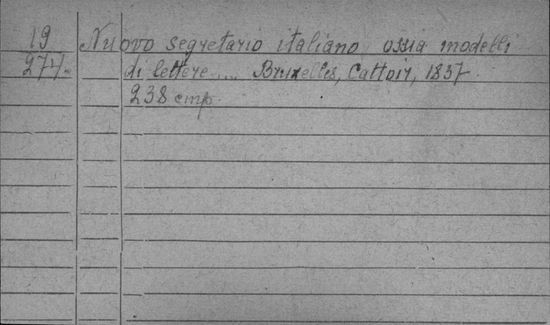 19 Nuovo segretario italiano ossia modelli
274. di lettere.... Bruxelles, Cattoir, 1837.
238 стр.